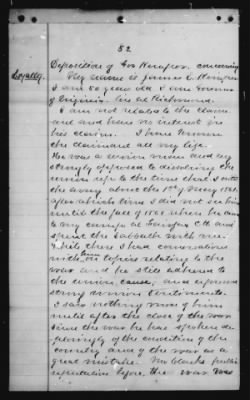 52
Deposition of Jas Kemper concerning
Loyalty.
My name is James L. Kemper
I am 50 years old I am Governor
of Virginia. Res at Richmond.
I am not related to the claim-
ant and have no interest in
his claim. I have known
the claimant all my life.
He was a union man and very
strongly opposed to dissolving the
union up to the time that I went
the army about the 1st of May 1861
after which time I did not see him
until the fall of 1861 when he came
to my camp at Fairfax C.H. and
spent the Sabbath with me.
While there I had conversations
with him on topics relating to the
war and he still adhered to
the union cause, and expressed
strong union sentiments.
I saw nothing more of him
until after the close of the war
since the war he has spoken de-
of the condition of the
country and of the war as a
great mistake. Mr Clark's public
reputation before the war was